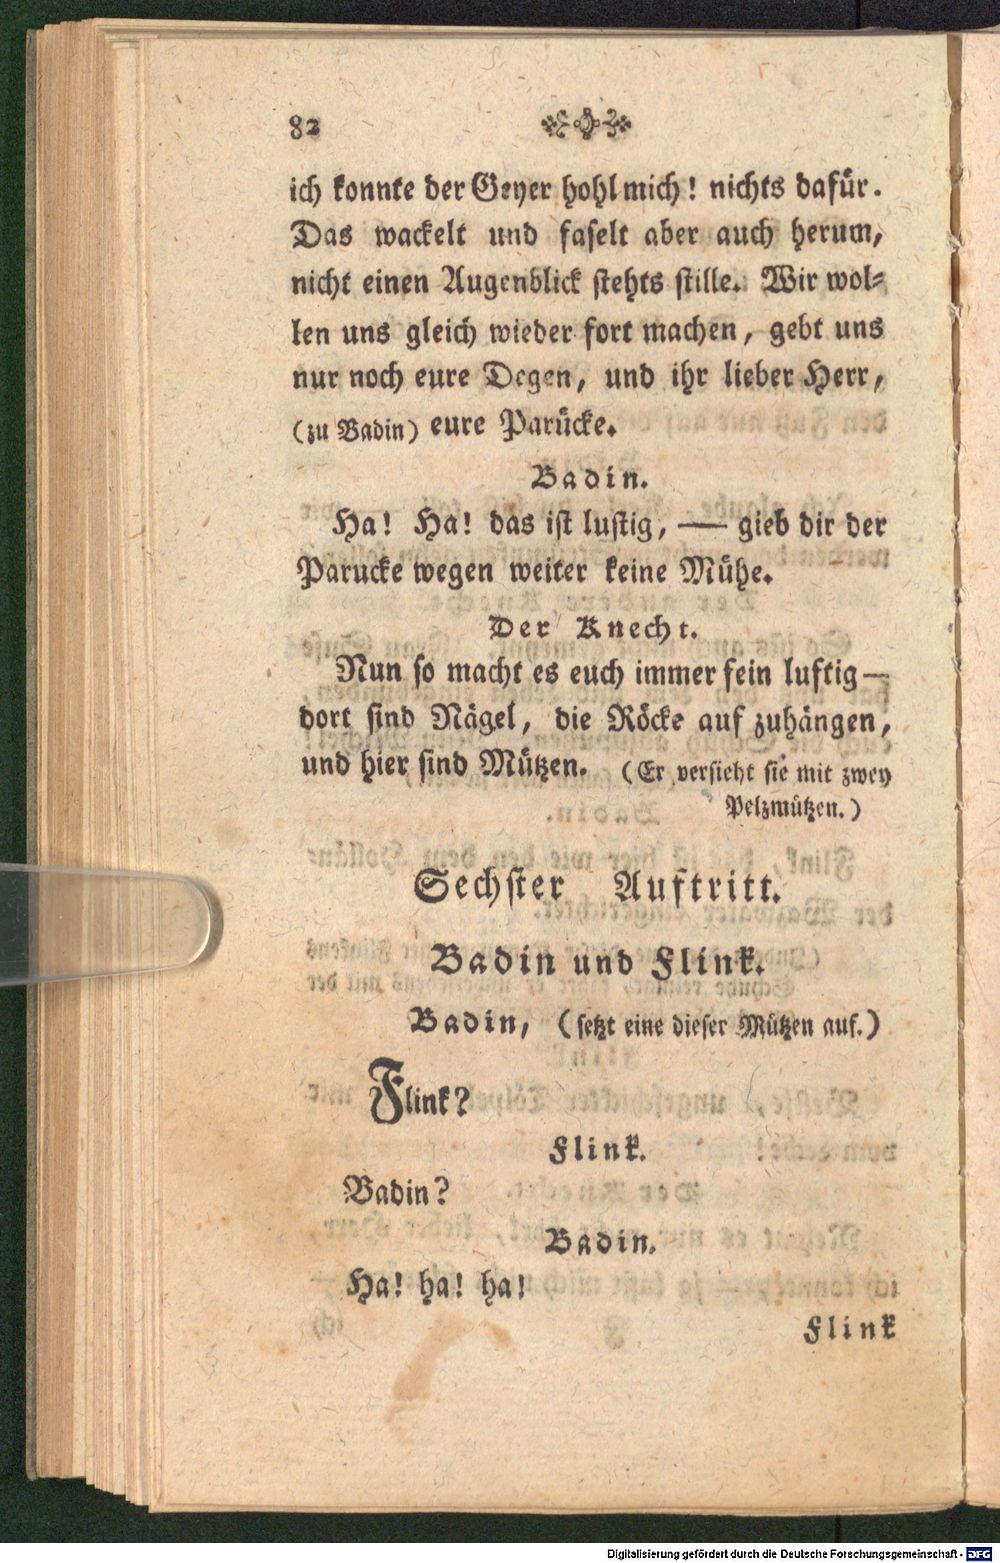 82
ich konnte der Geyer hohl mich! nichts dafür.
Das wackelt und faselt aber auch herum,
nicht einen Augenblick stehts stille. Wir wol⸗
len uns gleich wieder fort machen, gebt uns
nur noch eure Degen, und ihr lieber Herr,
(zu Badin) eure Parücke.
Badin.
Ha! Ha! das ist lustig, — gieb dir der
Parucke wegen weiter keine Mühe.
Der Knecht.
Nun so macht es euch immer fein luftig —
dort sind Nägel, die Röcke auf zuhängen,
und hier sind Mützen. (Er versieht sie mit zwey
Pelzmützen.)
Sechster Auftritt.
Badin und Flink.
Badin, (setzt eine dieser Mützen auf.)
Flink?
Flink.
Badin?
Badin.
Ha! ha! ha!
Flink
Digitalisierung gefördert durch die Deutsche Forschungsgemeinschaft - DFG